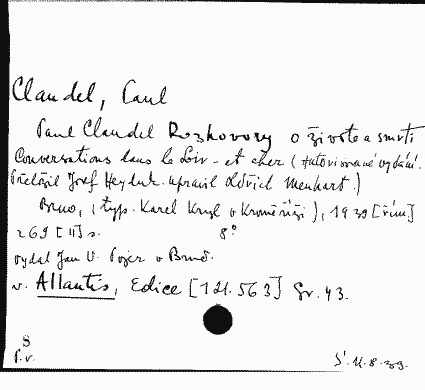 Claudel, Paul
Paul Claudel Rozhovory o životě a smrti
Conversations dans le Loir-et cher (Autorisované vydání.
Přeložil Josef Heyduk. upravil Oldřich Menhart.)
Brno, (typ. Karel Kryl v Kroměříži), 1939 [říjen]
269 [II] s. 8°
vydal Jan V. Pojer v Brně.
v. Atlantis, Edice [121.563] Sv. 43.
8
P.v.